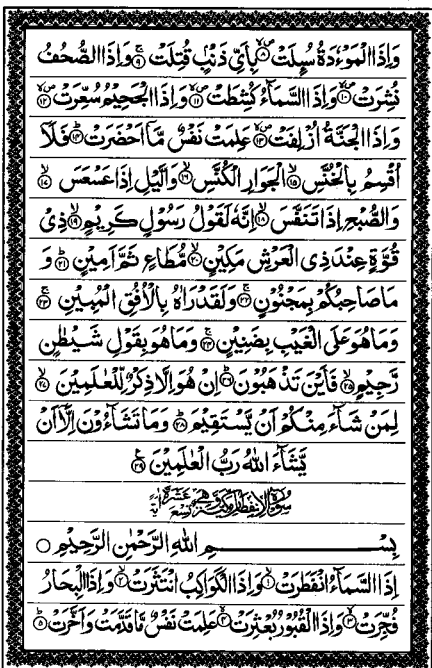 وَاِذَا الْمَوْءٗدَةُ سُىِٕلَتْ ۪ۙ۸ بِاَىِّ ذَنْۢبٍ قُتِلَتْ ۚ۹ وَاِذَا الصُّحُفُ
نُشِرَتْ ۪ۙ۱۰ وَاِذَا السَّمَآءُ كُشِطَتْ ۪ۙ۱۱ وَاِذَا الْجَحِيْمُ سُعِّرَتْ ۪ۙ۱۲
وَاِذَا الْجَنَّةُ اُزْلِفَتْ ۪ۙ۱۳ عَلِمَتْ نَفْسٌ مَّاۤ اَحْضَرَتْ ؕ۱۴ فَلَاۤ
اُقْسِمُ بِالْخُنَّسِ ۙ۱۵ الْجَوَارِ الْكُنَّسِ ۙ۱۶ وَالَّيْلِ اِذَا عَسْعَسَ ۙ۱۷
وَالصُّبْحِ اِذَا تَنَفَّسَ ۙ۱۸ اِنَّهٗ لَقَوْلُ رَسُوْلٍ كَرِيْمٍ ۙ۱۹ ذِىْ
قُوَّةٍ عِنْدَ ذِى الْعَرْشِ مَكِيْنٍ ۙ۲۰ مُّطَاعٍ ثَمَّ اَمِيْنٍ ؕ۲۱ وَ
مَا صَاحِبُكُمْ بِمَجْنُوْنٍ ۚ۲۲ وَلَقَدْ رَاٰهُ بِالْاُفُقِ الْمُبِيْنِ ۚ۲۳
وَمَا هُوَ عَلَى الْغَيْبِ بِضَنِيْنٍ ۚ۲۴ وَمَا هُوَ بِقَوْلِ شَيْطٰنٍ
رَّجِيْمٍ ۙ۲۵ فَاَيْنَ تَذْهَبُوْنَ ؕ۲۶ اِنْ هُوَ اِلَّا ذِكْرٌ لِّلْعٰلَمِيْنَ ۙ۲۷
لِمَنْ شَآءَ مِنْكُمْ اَنْ يَّسْتَقِيْمَ ؕ۲۸ وَمَا تَشَآءُوْنَ اِلَّاۤ اَنْ
يَّشَآءَ اللّٰهُ رَبُّ الْعٰلَمِيْنَ ۲۹
سُوْرَةُ الْاِنْفِطَارِ مَكِّيَّةٌ وَّهِىَ تِسْعَ عَشْرَةَ اٰيَةً
بِسْمِ اللّٰهِ الرَّحْمٰنِ الرَّحِيْمِ ○
اِذَا السَّمَآءُ انْفَطَرَتْ ۙ۱ وَاِذَا الْكَوَاكِبُ انْتَثَرَتْ ۙ۲ وَاِذَا الْبِحَارُ
فُجِّرَتْ ۙ۳ وَاِذَا الْقُبُوْرُ بُعْثِرَتْ ۙ۴ عَلِمَتْ نَفْسٌ مَّا قَدَّمَتْ وَاَخَّرَتْ ؕ۵